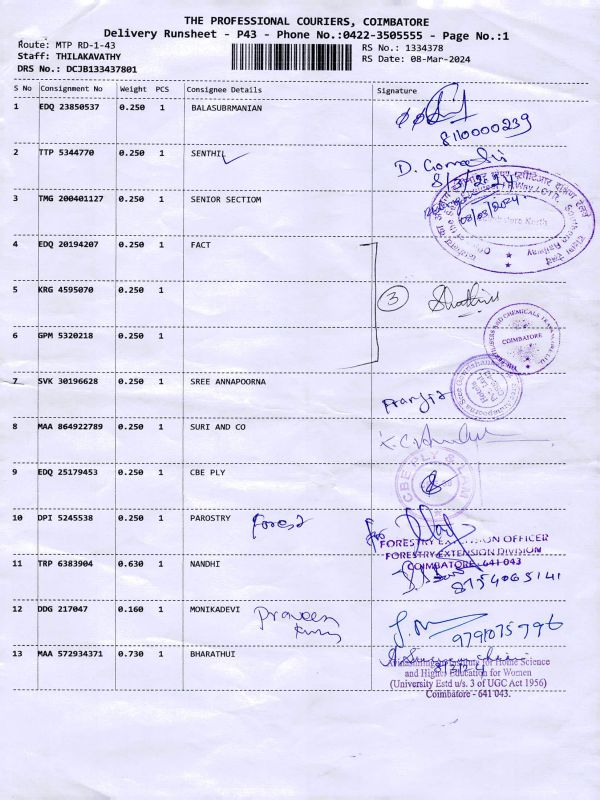 THE PROFESSIONAL COURIERS, COIMBATORE
Delivery Runsheet - P43 - Phone No.:0422-3505555 - Page No.:1
Route: MTP RD-1-43
RS No.: 1334378
Staff: THILAKAVATHY
RS Date: 08-Mar-2024
DRS No.: DCJB133437801
S No Consignment No Weight PCS Consignee Details Signature
1 EDQ 23850537 0.250 1 BALASUBRMANIAN
8110000239
2 TTP 5344770 0.250 1 SENTHIL
8/3/24
3 TMG 200401127 0.250 1 SENIOR SECTIOM
08/03/2024
Southern Railway
4 EDQ 20194207 0.250 1 FACT
5 KRG 4595070 0.250 1
3
6 GPM 5320218 0.250 1
COIMBATORE
7 SVK 30196628 0.250 1 SREE ANNAPOORNA
8 MAA 864922789 0.250 1 SURI AND CO
9 EDQ 25179453 0.250 1 CBE PLY
CBE PLY & LAM
10 DPI 5245538 0.250 1 PAROSTRY Forest
for
FORESTRY EXTENSION OFFICER
FORESTRY EXTENSION DIVISION
COIMBATORE - 641 043
11 TRP 6383904 0.630 1 NANDHI
8754065141
12 DDG 217047 0.160 1 MONIKADEVI Praveen
9791075796
13 MAA 572934371 0.730 1 BHARATHUI
Institute for Home Science
and Higher Education for Women
(University Estd u/s. 3 of UGC Act 1956)
Coimbatore - 641 043.